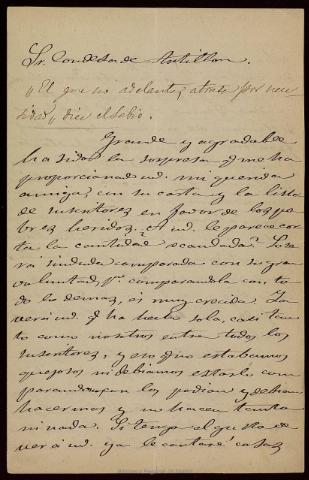 Sr. Condesa de
"El que no adelante, atrasa por nece
sidad", dice el sabio.
Grande y agradable
ha sido la sorpresa q. me ha
proporcionado ud. mi querida
amiga, con su carta y la lista
de suscritores en favor de los po
bres heridos. A ud. le parece cor
ta la cantidad recaudada? Lo se
rá sin duda comparada con su gran
voluntad, pº comparandola con to
do lo demaz, és muy crecida. Ya
verá ud. q. ha hecho sola, casi tan
to como nosotros entre todos los
suscritores, y eso q. no estabamos
quejosos ni debiamos estarlo com
parandonos con los q. podian y debian
hacernos y no hacen tanto
ni nada. Si tengo el gusto de
ver á ud. ya le contaré cosaz
Biblioteca Nacional de España